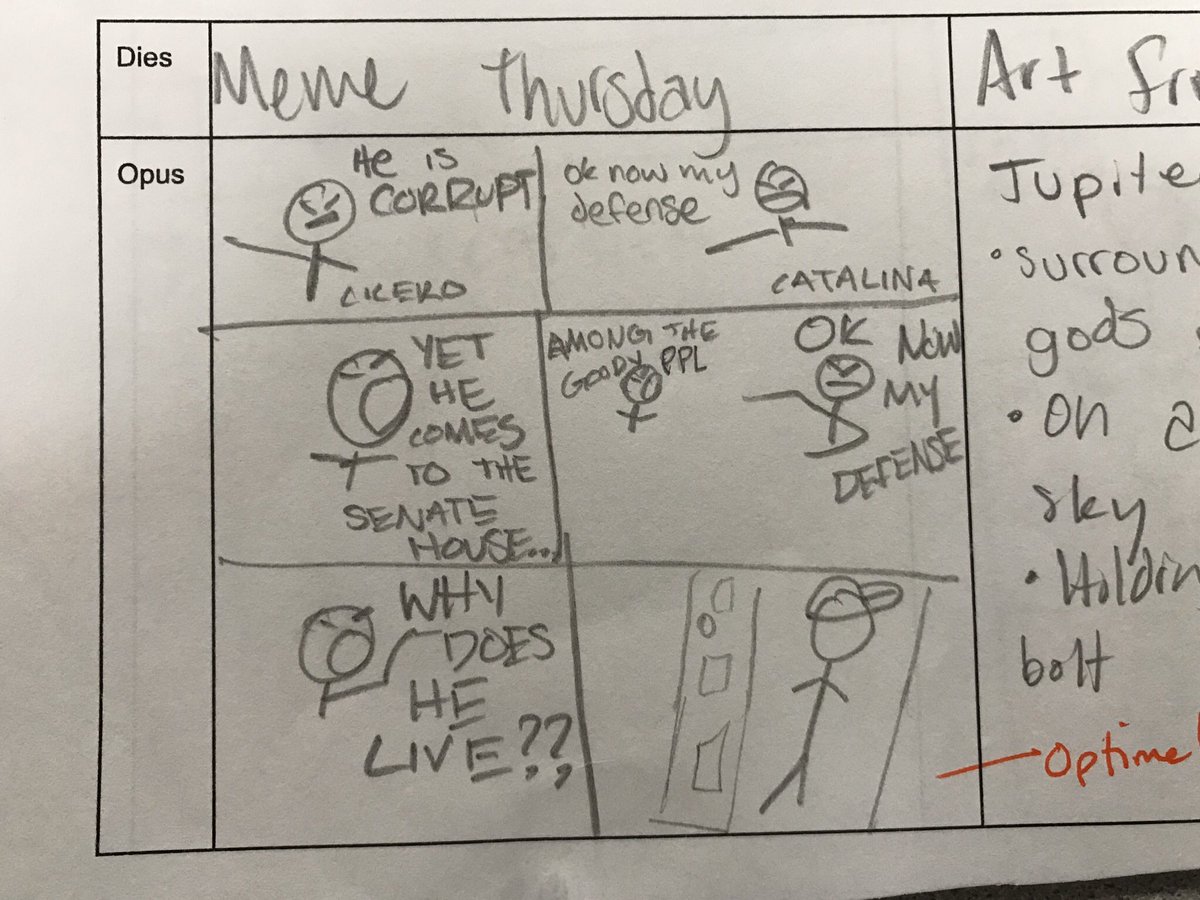 Dies
Meme Thursday
Art
Opus
He is
CORRUPT
CICERO
ok now my
defense
CATALINA
YET
HE
COMES
TO THE
SENATE
HOUSE...
AMONG THE
GOODY PPL
OK NOW
MY
DEFENSE
WHY
DOES
HE
LIVE??
Jupite
• surroun
gods
• On a
sky
• Holdin
bolt
Optime